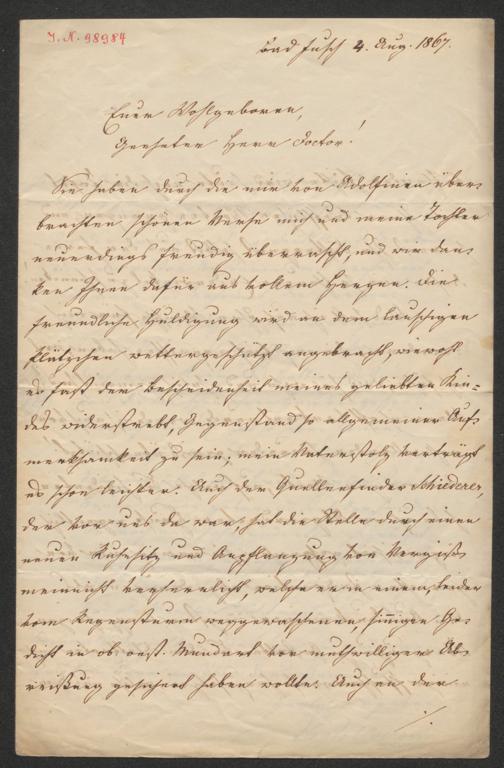 I. N. 98984
Bad Fusch 4. Aug. 1867.
Euer Wohlgeboren,
Geehrter Herr Doctor!
Sie haben durch die mir von Adolfinen über-
brachten schönen Verse mich und meine Tochter
neuerdings freudig überrascht, und wir dan-
ken Ihnen dafür aus vollem Herzen. Die
freundliche Huldigung wird an dem lauschigen
Plätzchen wettergeschützt angebracht, wiewohl
es fast der Bescheidenheit meines geliebten Kin-
des widerstrebt, Gegenstand so allgemeiner Auf-
merksamkeit zu sein; mein Vaterstolz verträgt
es schon leichter. Auch der Quellenfinder Schiederer,
der vor uns da war, hat die Stelle durch einen
neuen Ruhesitz und Anpflanzung von Vergiß-
meinnicht verherrlicht, welche er in einem, leider
vom Regensturm weggewaschenen, sinnigen Ge-
dicht in ob. oest. Mundart vor muthwilliger Ab-
reißung gesichert haben wollte. Auch an der
./.